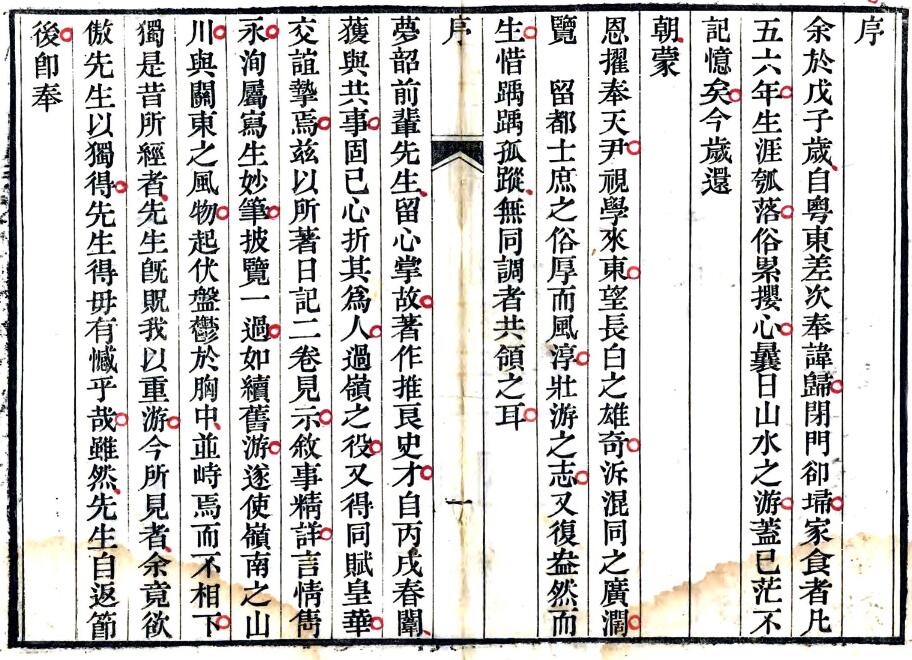 序
余於戊子歲自粵東差次奉諱歸閉門卻埽家食者凡
五六年生涯瓠落俗累攖心曩日山水之游蓋已茫不
記憶矣今歲還
朝蒙
恩擢奉天尹視學來東望長白之雄奇泝混同之廣濶
覽　留都士庶之俗厚而風淳壯游之志又復盎然而
生惜踽踽孤蹤無同調者共領之耳
序
一
夢韶前輩先生留心掌故著作推良史才自丙戌春闈
獲與共事固已心折其為人過嶺之役又得同賦皇華
交誼摯焉茲以所著日記二卷見示敘事精詳言情雋
永洵屬寫生妙筆披覽一過如續舊游遂使嶺南之山
川與關東之風物起伏盤鬱於胸中並峙焉而不相下
獨是昔所經者先生旣貺我以重游今所見者余竟欲
傲先生以獨得先生得毋有憾乎哉雖然先生自返節
後卽奉